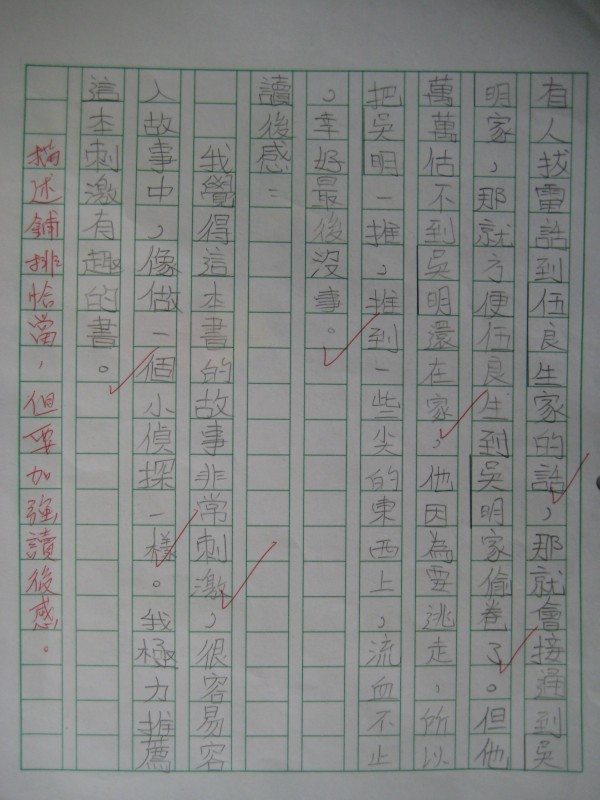 有人找電話到伍良生家的話，那就會接通到吳
明家，那就方便伍良生到吳明家偷卷了。但他
萬萬估不到吳明還在家，他因為要逃走，所以
把吳明一推，推到一些尖的東西上，流血不止
，幸好最後沒事。
讀後感：
我覺得這本書的故事非常刺激，很容易容
入故事中，像做一個小偵探一樣。我極力推薦
這本刺激有趣的書。
描述鋪排恰當，但要加強讀後感。